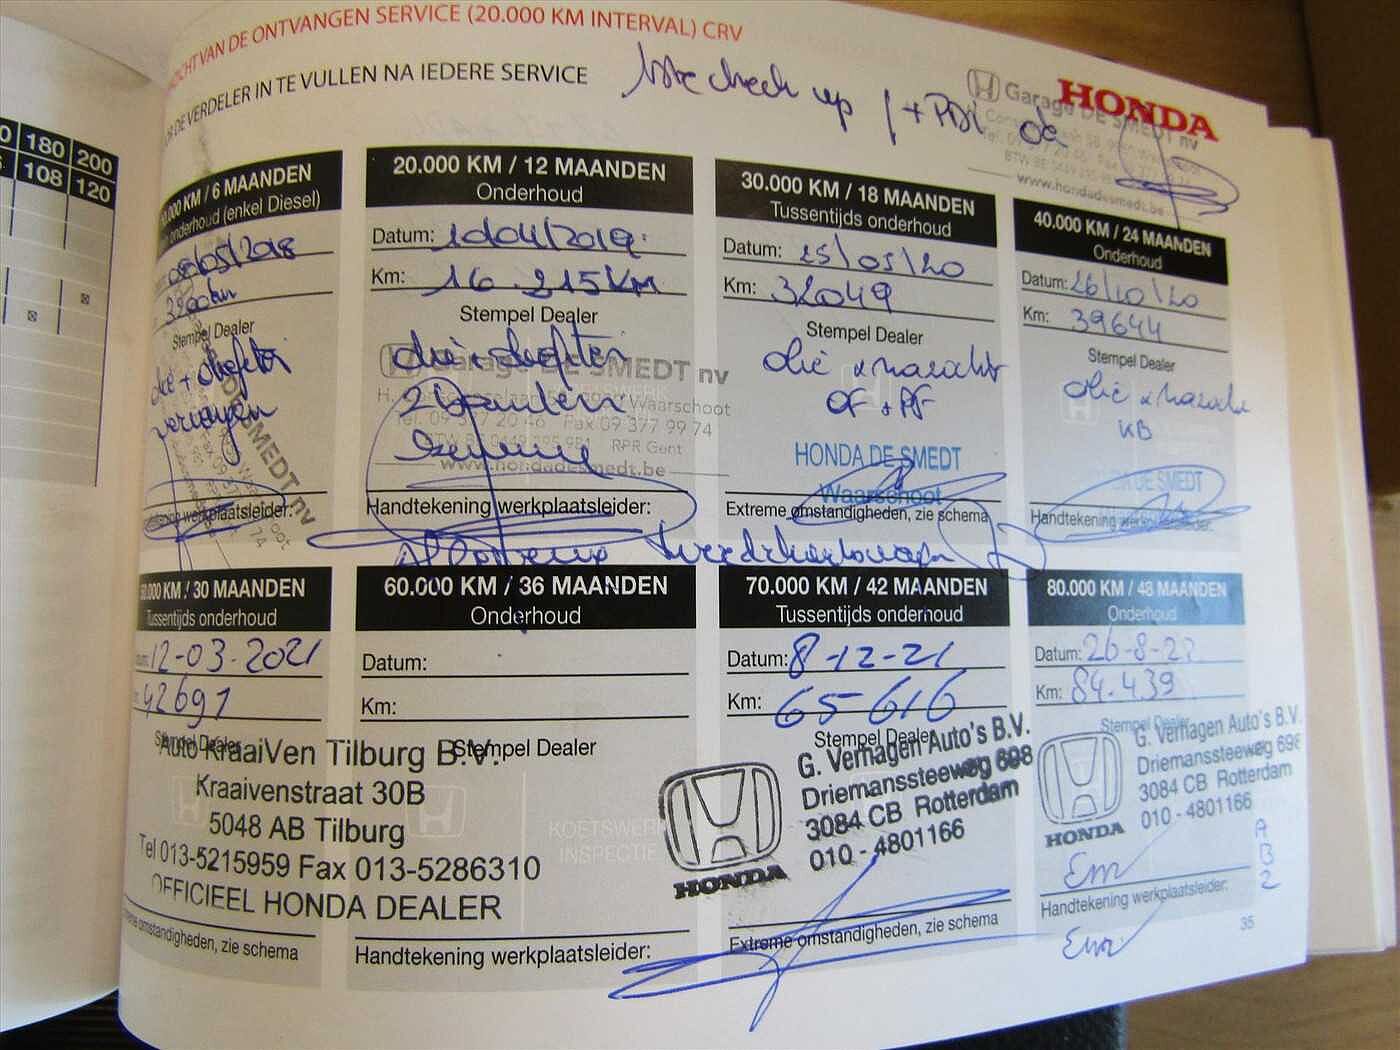 VAN DE ONTVANGEN SERVICE (20.000 KM INTERVAL) CRV
DE VERDELER IN TE VULLEN NA IEDERE SERVICE
check up / + PDI
Garage DE SMEDT nv
HONDA
www.hondadesmedt.be
180 200
108 120
KM / 6 MAANDEN
onderhoud (enkel Diesel)
/05/2018
Stempel Dealer
DE SMEDT nv
werkplaatsleider:
20.000 KM / 12 MAANDEN
Onderhoud
Datum: 10/04/2019
Km: 16.215 km
Stempel Dealer
Garage DE SMEDT nv
Waarschoot
Tel. 09 377 20 46 Fax 09 377 99 74
RPR Gent
www.hondadesmedt.be
Handtekening werkplaatsleider:
30.000 KM / 18 MAANDEN
Tussentijds onderhoud
Datum: 25/05/20
Km: 32049
Stempel Dealer
olie + nazicht
HONDA DE SMEDT
Waarschoot
Extreme omstandigheden, zie schema
40.000 KM / 24 MAANDEN
Onderhoud
Datum: 26/10/20
Km: 39644
Stempel Dealer
olie + nazicht
KB
DA DE SMEDT
Handtekening werkplaatsleider:
.000 KM / 30 MAANDEN
Tussentijds onderhoud
12-03-2021
42691
Stempel Dealer
Auto KraaiVen Tilburg B.V.
Kraaivenstraat 30B
5048 AB Tilburg
Tel 013-5215959 Fax 013-5286310
OFFICIEEL HONDA DEALER
omstandigheden, zie schema
60.000 KM / 36 MAANDEN
Onderhoud
Datum:
Km:
Stempel Dealer
KOETSWERK
INSPECTIE
Handtekening werkplaatsleider:
70.000 KM / 42 MAANDEN
Tussentijds onderhoud
Datum: 8-12-21
Km: 65-616
Stempel Dealer
G. Verhagen Auto's B.V.
Driemanssteeweg 698
3084 CB Rotterdam
010 - 4801166
HONDA
Extreme omstandigheden, zie schema
80.000 KM / 48 MAANDEN
Onderhoud
Datum: 26-8-22
Km: 84.439
Stempel Dealer
G. Verhagen Auto's B.V.
Driemanssteeweg 698
3084 CB Rotterdam
010 - 4801166
HONDA
A
B
2
Handtekening werkplaatsleider:
35